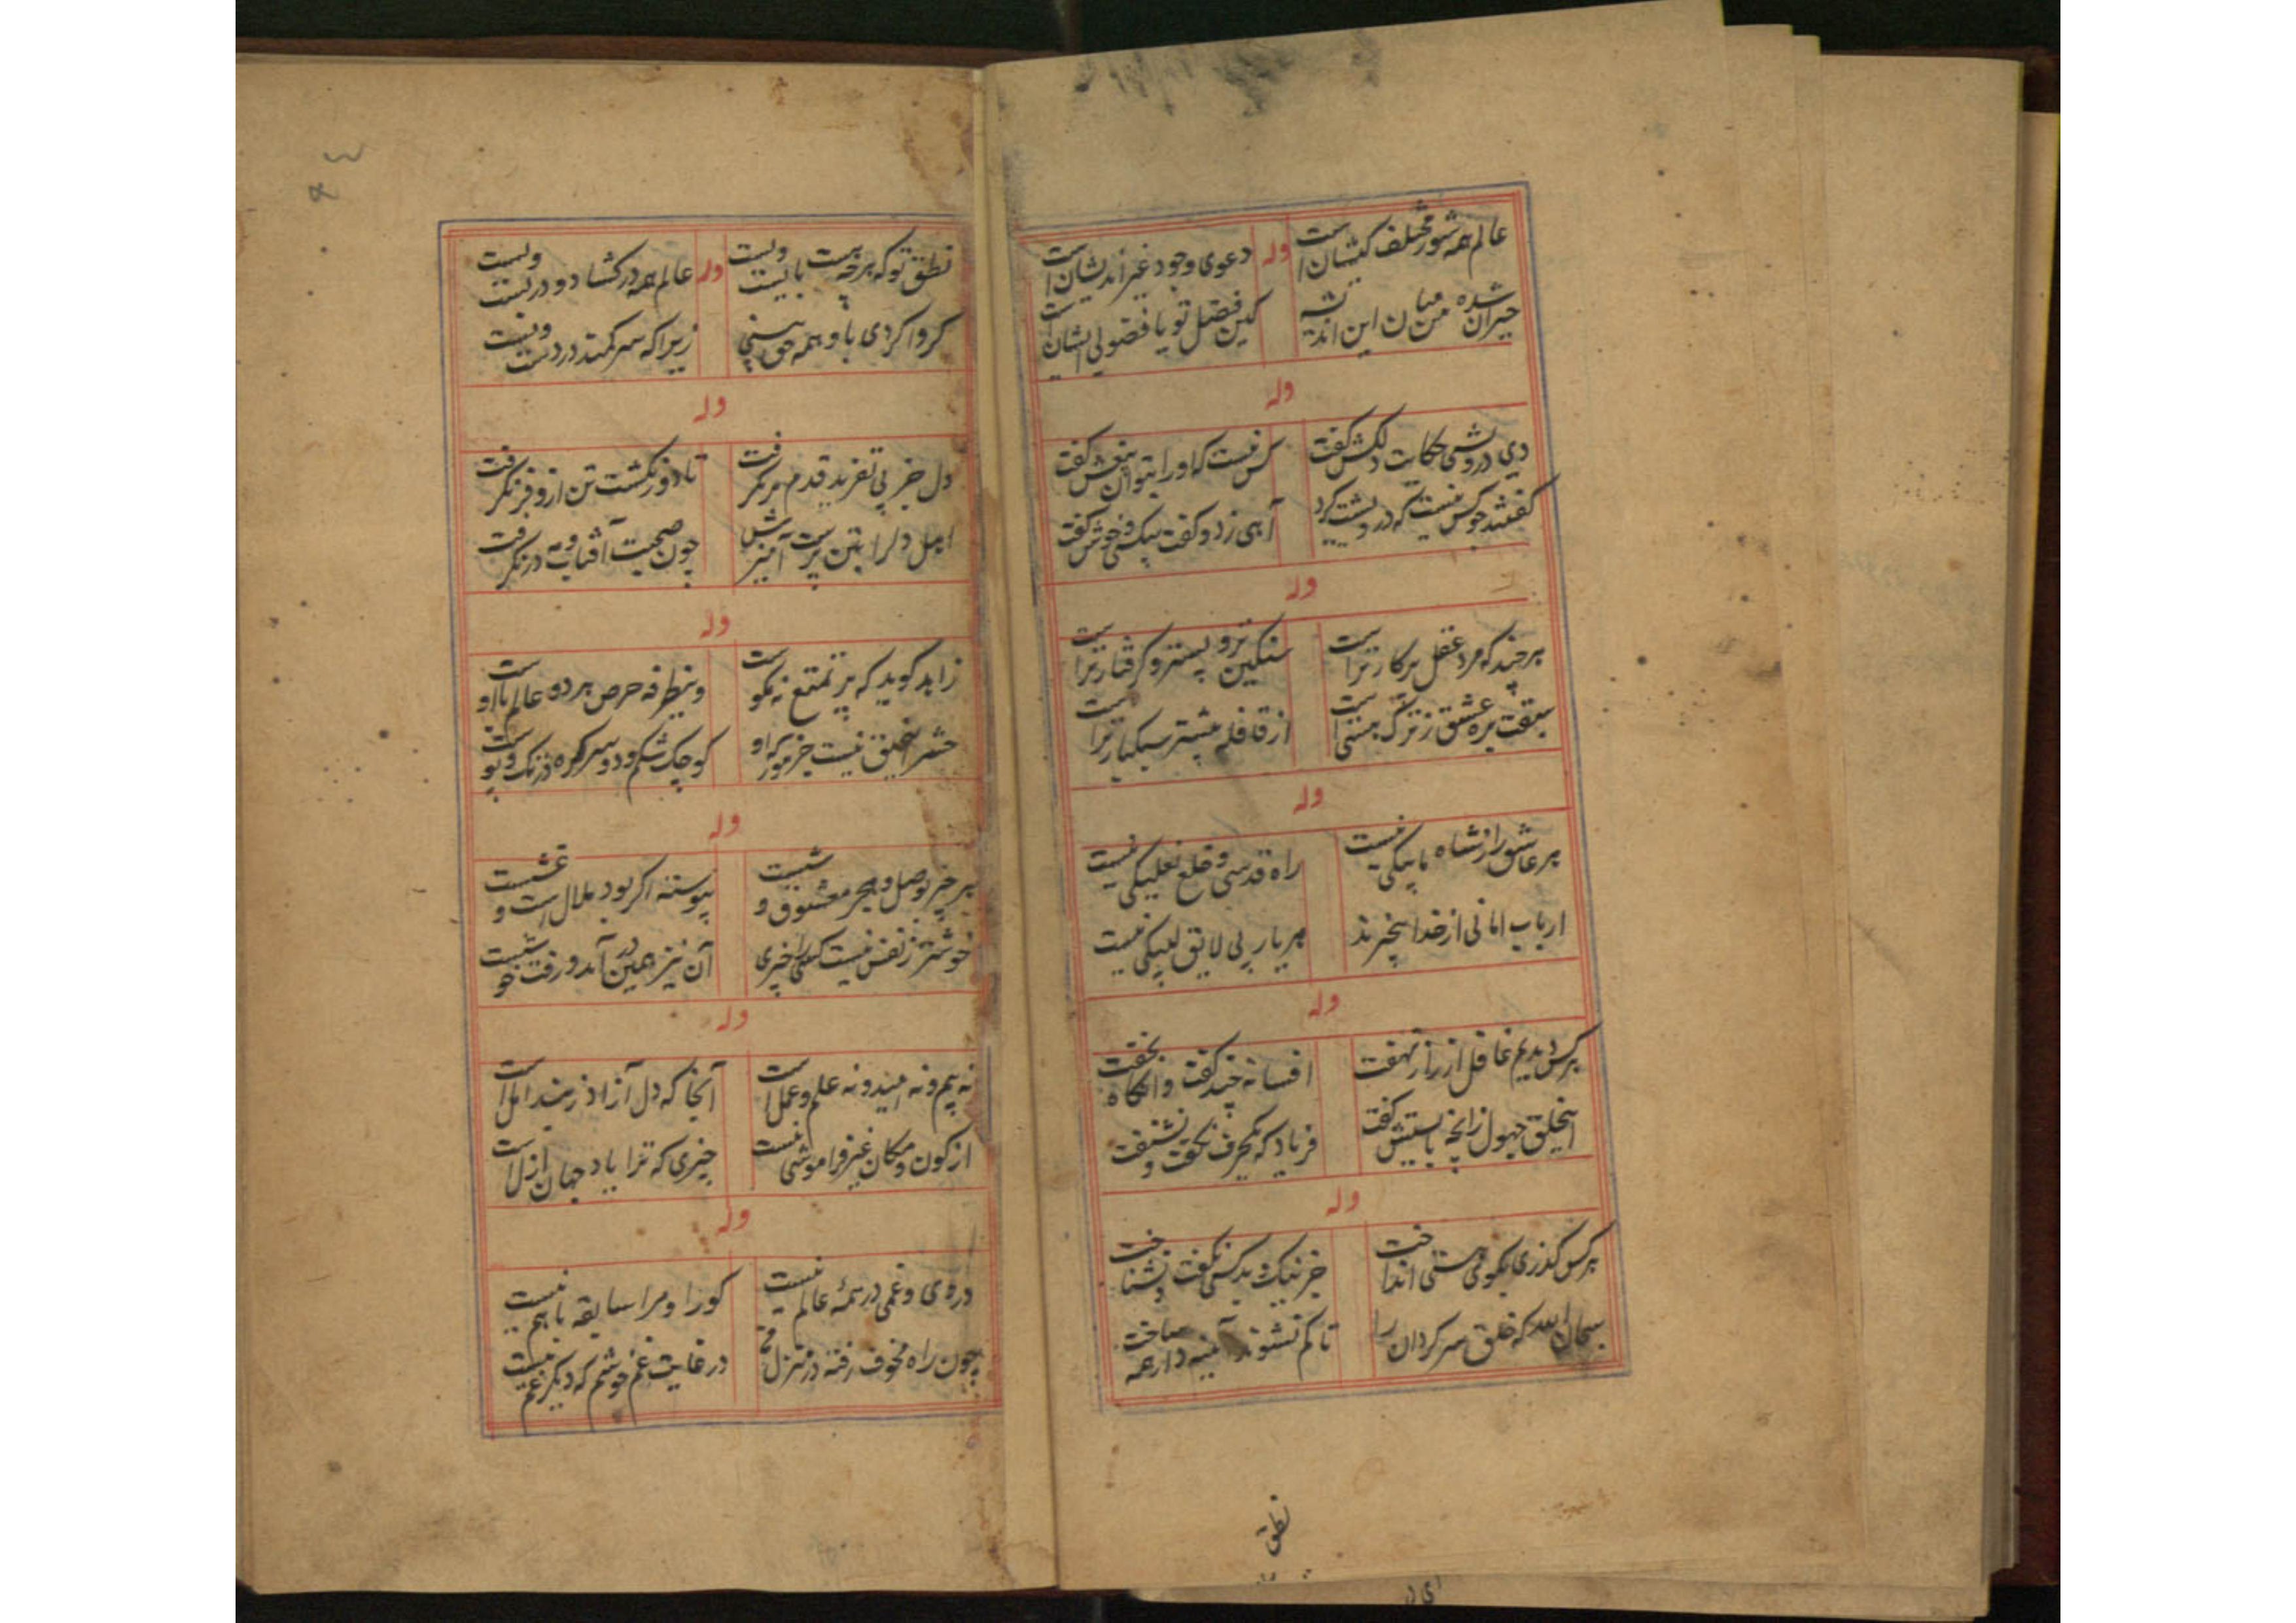 عالم همه شور مختلف کیشان است
وله
دعوی وجود غیر اندیشان است
حیران شده من میان این اندیشه
کین فضل تو یا فضولی ایشان است
وله
دی درویشی حکایت دلکش گفت
کس نیست که او را بتوان نیغش گفت
گفتند چو کس نیست که درویشت کرد
آهی زد و گفت بیکسی و خوش گفت
وله
هر چند که مرد عقل پرکارتر است
سنگین تر و پسترو و گرفتارتر است
سبقت بره عشق ز ترک هستی است
از قافله پیشتر سبکبارتر است
وله
هر عاشق را ز شاه ما پیکی نیست
راه قدسی و خلع نعلیکی نیست
ارباب امانی از خدا بیخبرند
هر یاربی لایق لبیکی نیست
وله
هر کس دیدیم غافل از راز نهفت
افسانه چند گفت و آنگاه بخفت
اینخلق جهول زانچه بایستش گفت
فریاد که یکحرف نگفت و نشنفت
وله
هر کس گذری بکوی هستی انداخت
جز نیک و بد کسی نگفت و نشناخت
سبحان الله که خلق سرگردان را
تا گم نشوند آینه دار همه ساخت
نطق
نطق تو که هر چه هست بایست ویست
وله
عالم همه در گشاد و در بست ویست
گر وا کردی با و همه حق بینی
زیرا که سر کمند در دست ویست
وله
دل جز پی تفرید قدم برنگرفت
تا دور نگشت تن ازو فر نگرفت
اهل دل را بتن پرست آمیزش
چون صحبت آفتاب و مه در نگرفت
وله
زاهد گوید که پر تمتع نه نکوست
وینطرفه حرص هر دو عالم با اوست
حشر اینخلق نیست جز مور که او
کوچک شکم و دو سر گره در تک و پوست
وله
هر چیز بوصل و هجر معشوق وشیست
پیوسته اگر بود ملال است و غشیست
خوشتر ز نفس نیست کسی را چیزی
آن نیز همین در آمد و رفت خوشیست
وله
نه بیم و نه امید و نه علم و عمل است
آنجا که دل آزاد ز بند امل است
از کون و مکان غیر فراموشی نیست
چیزی که ترا یاد جهان ازل است
وله
دردی و غمی در همه عالم نیست
کو را و مرا سابقه باهم نیست
چون راه مخوف رفته در منزل
در غایت غم خوشم که دیگر غم نیست